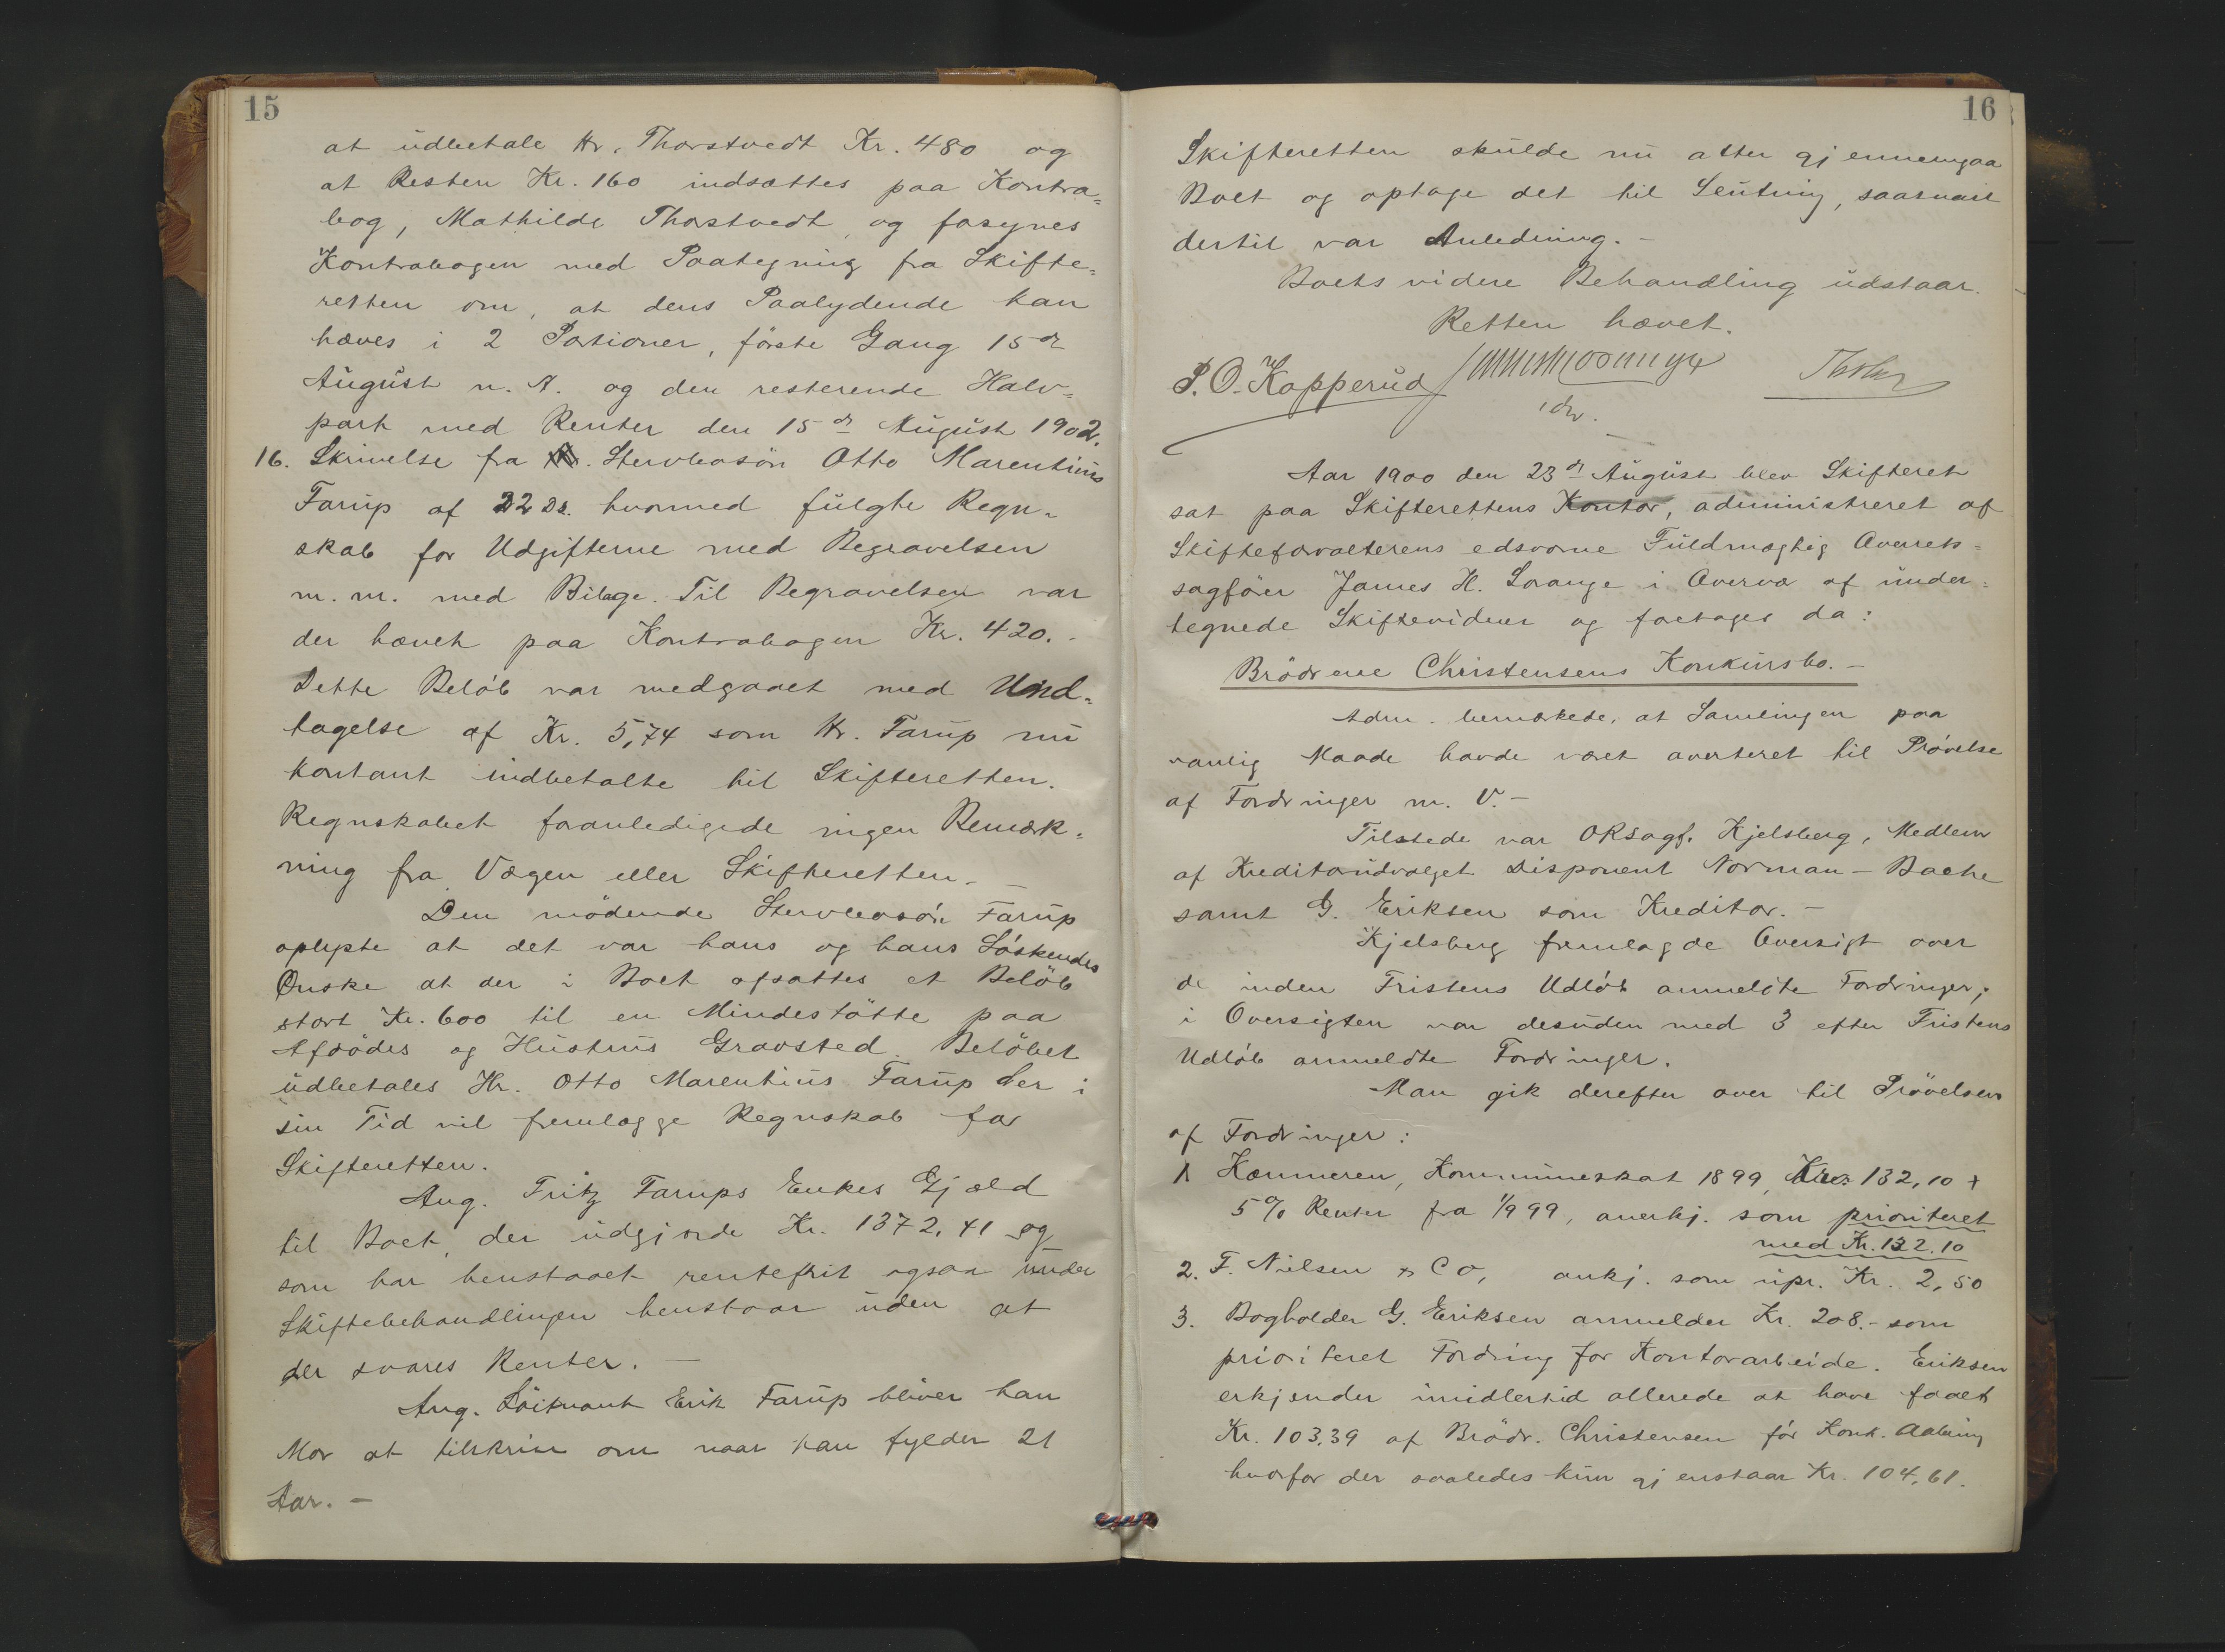 15
at udbetale Hr. Thorstvedt Kr. 480 og
at Resten Kr. 160 indsættes paa Kontra=
bog, Mathilde Thorstvedt, og forsynes
Kontrabogen med Paategning fra Skifte=
retten om, at dens Paalydende kan
hæves i 2 Portioner, förste Gang 15de
August n. A. og den resterende Halv=
part med Renter den 15de August 1902.
16. Skrivelse fra Stervbosön Otto Marentius
Farup af 22 Ds. hvormed fulgte Regn=
skab for Udgifterne med Begravelsen
m. m. med Bilage. Til Begravelsen var
der hævet paa Kontrabogen Kr. 420.-
Dette Belöb var medgaaet med Und=
tagelse af Kr. 5,74 som Hr. Farup nu
kontant indbetalte til Skifteretten.
Regnskabet foranledigede ingen Bemærk=
ning fra Værgen eller Skifteretten. -
Den mödende Stervbosön Farup
oplyste at det var hans og hans Söskendes
Önske at der i Boet afsattes et Belöb
stort Kr. 600 til en Mindestötte paa
Afdödes og Hustrus Gravsted. Belöbet
udbetales Hr. Otto Marentius Farup der i
sin Tid vil fremlægge Regnskab for
Skifteretten.
Ang. Fritz Farups Enkes Gjæld
til Boet, der udgjorde Kr. 1372,41 og
som har henstaaet rentefrit ogsaa under
Skiftebehandlingen henstaar uden at
der svares Renter. -
Ang. Löitnant Erik Farup bliver han
Mor at tilskrive om naar han fylder 21
Aar. -
16
Skifteretten skulde nu atter gjennemgaa
Boet og optage det til Slutning, saasnart
dertil var Anledning. -
Boets videre Behandling udstaar.
Retten hævet.
P. O. Kopperud
Aar 1900 den 23de August blev Skifteret
sat paa Skifterettens Kontor, administreret af
Skifteforvalterens edsvorne Fuldmægtig Overrets=
sagförer James H. Lorange i Overvær af under=
tegnede Skiftevidner og foretages da:
Brödrene Christensens Konkursbo. -
Adm. bemærkede, at Samlingen paa
vanlig Maade havde været averteret til Prövelse
af Fordringer m. V. -
Tilstede var ORsagf. Kjelsberg, Medlem
af Kreditorudvalget Disponent Norman - Bache
samt G. Eriksen som Kreditor. -
Kjelsberg fremlagde Oversigt over
de inden Fristens Udlöb anmeldte Fordringer;
i Oversigten var desuden med 3 efter Fristens
Udlöb anmeldte Fordringer.
Man gik derefter over til Prövelsen
af Fordringer:
1 Kæmneren, Kommuneskat 1899, Kr. 132,10 +
5 % Renter fra 1/9 99, anerkj. som prioriteret
med Kr. 132.10
2. F. Nielsen & Co, ankj. som upr. Kr. 2,50
3. Bogholder G. Eriksen anmelder Kr. 208.- som
prioriteret Fordring for Kontorarbeide. Eriksen
erkjender imidlertid allerede at have faaet
Kr. 103,39 af Brödr. Christensen för Konk. Aabning
hvorfor der saaledes kun gjenstaar Kr. 104,61.